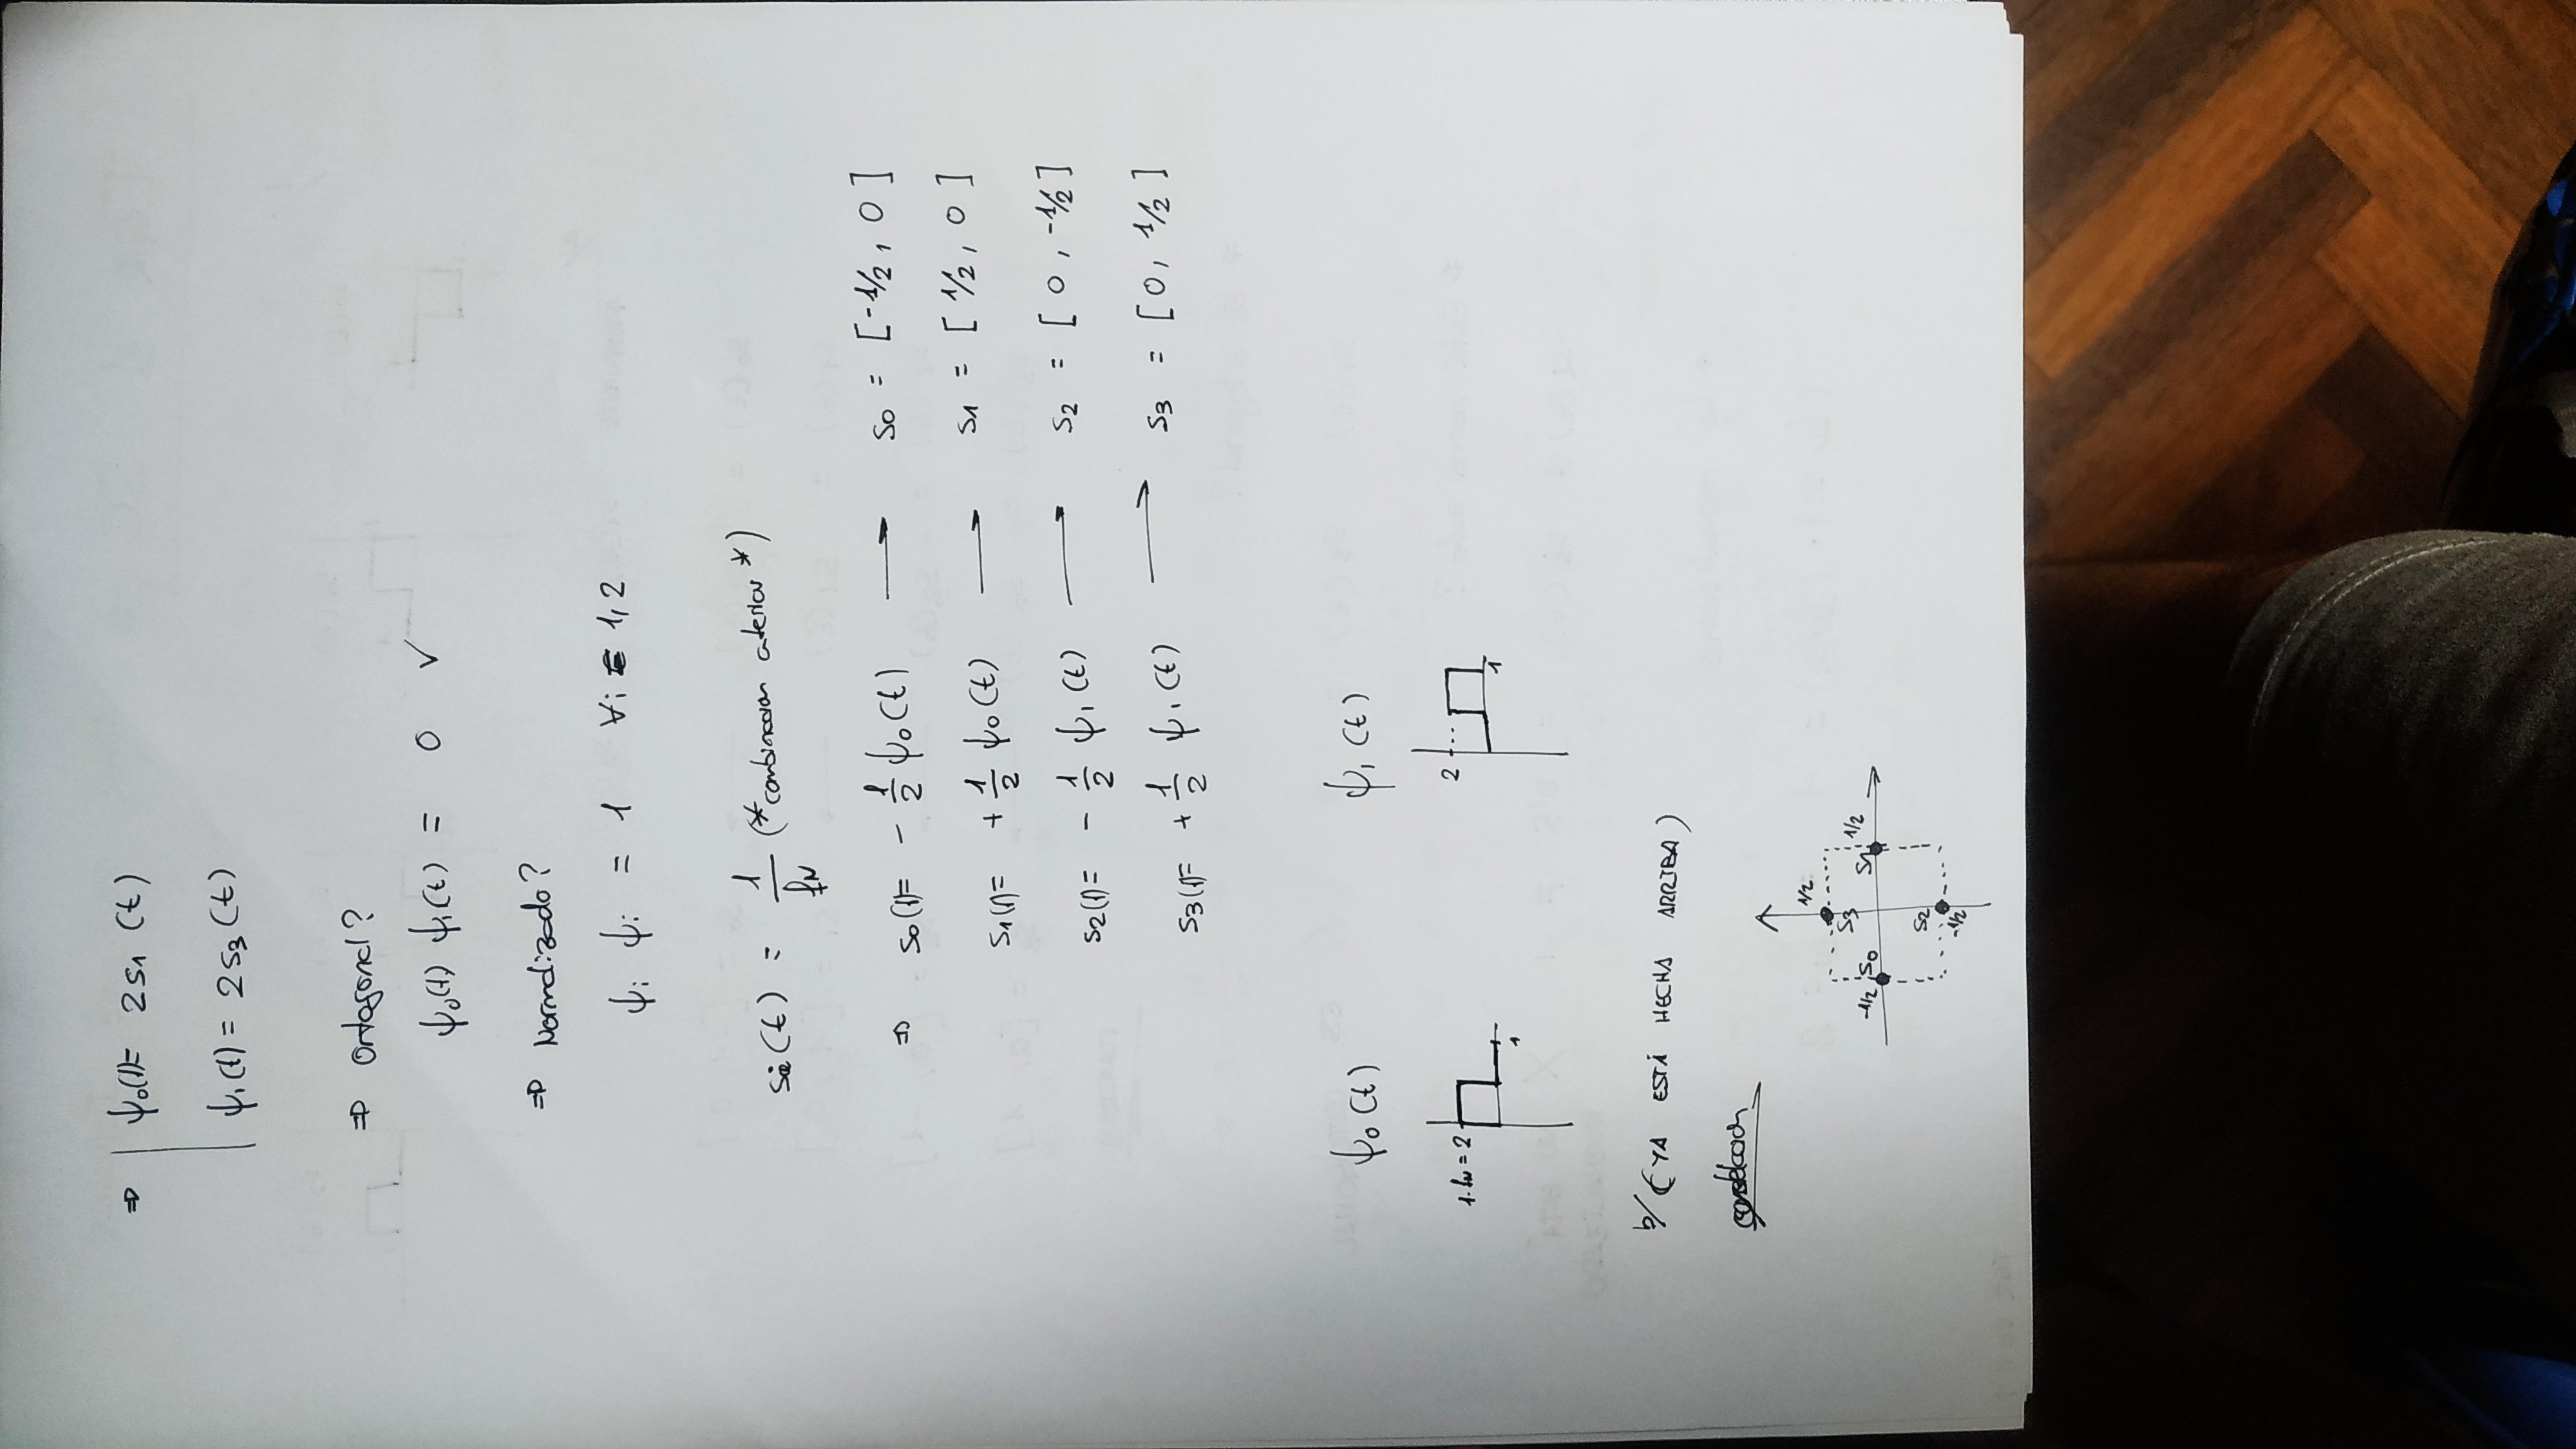 ⇒ ψ₀(t)= 2s₁ (t)
ψ₁(t) = 2s₃(t)
⇒ Ortogonal?
ψ₀(t) ψ₁(t) = 0 ✓
⇒ Normalizado?
ψᵢ ψᵢ = 1 ∀i ∈ 1,2
sᵢ(t) = 1/fN (*combinacion aterior*)
⇒ s₀(t)= - 1/2 ψ₀(t) → s₀ = [-1/2, 0]
s₁(t)= + 1/2 ψ₀(t) → s₁ = [1/2, 0]
s₂(t)= - 1/2 ψ₁(t) → s₂ = [0, -1/2]
s₃(t)= + 1/2 ψ₁(t) → s₃ = [0, 1/2]
ψ₀(t) ψ₁(t)
1·fN = 2
1
2
1
b/ (YA ESTÁ HECHA ARRIBA)
1/2
S₃
-1/2 S₀ S₁ 1/2
S₂
-1/2